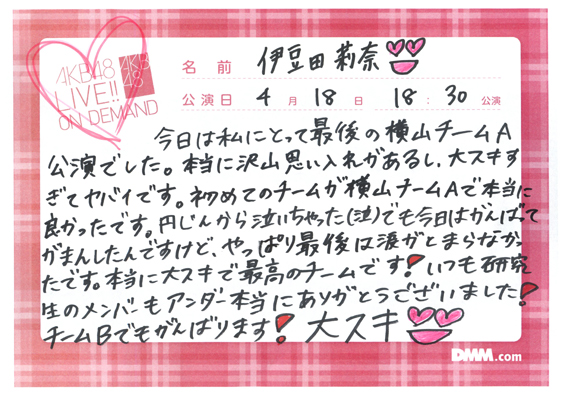 AKB48
LIVE!!
ON DEMAND
AKB
48
名前 伊豆田莉奈
公演日 4月18日 18:30公演
今日は私にとって最後の横山チームA
公演でした。本当に沢山思い入れがあるし、大スキす
ぎてヤバイです。初めてのチームが横山チームAで本当に
良かったです。円じんから泣いちゃった(泣)でも今日はがんばて
がまんしたんですけど、やっぱり最後は涙がとまらなかっ
たです。本当に大スキで最高のチームです!いつも研究
生のメンバーもアンダー本当にありがとうございました!
チームBでもがんばります!大スキ
DMM.com